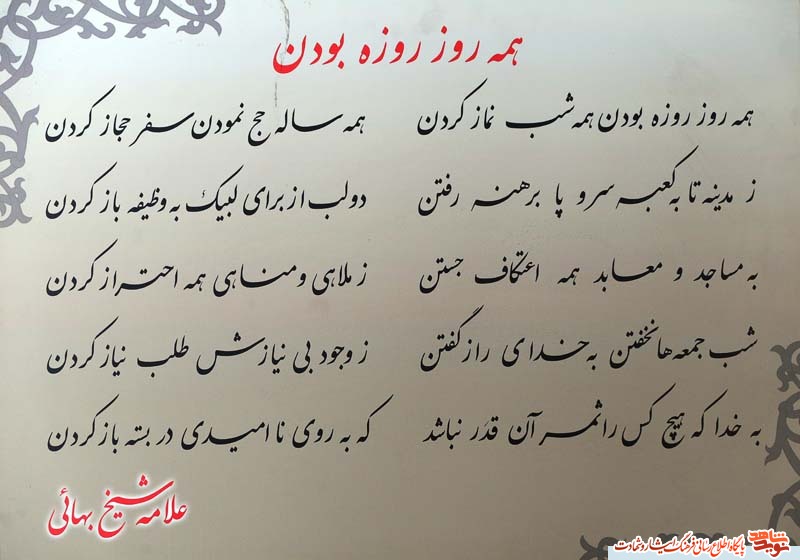 همه روز روزه بودن
همه روز روزه بودن همه شب نماز کردن همه ساله حج نمودن سفر حجاز کردن
ز مدینه تا به کعبه سر و پا برهنه رفتن دو لب از برای لبیک به وظیفه باز کردن
به مساجد و معابد همه اعتکاف جستن ز ملاهی و مناهی همه احتراز کردن
شب جمعه‌ها نخفتن به خدای راز گفتن ز وجود بی نیازش طلب نیاز کردن
به خدا که هیچ کس را ثمر آن قدر نباشد که به روی نا امیدی در بسته باز کردن
علامه شیخ بهائی
پایگاه اطلاع رسانی فرهنگ ایثار و شهادت
نوید شاهد